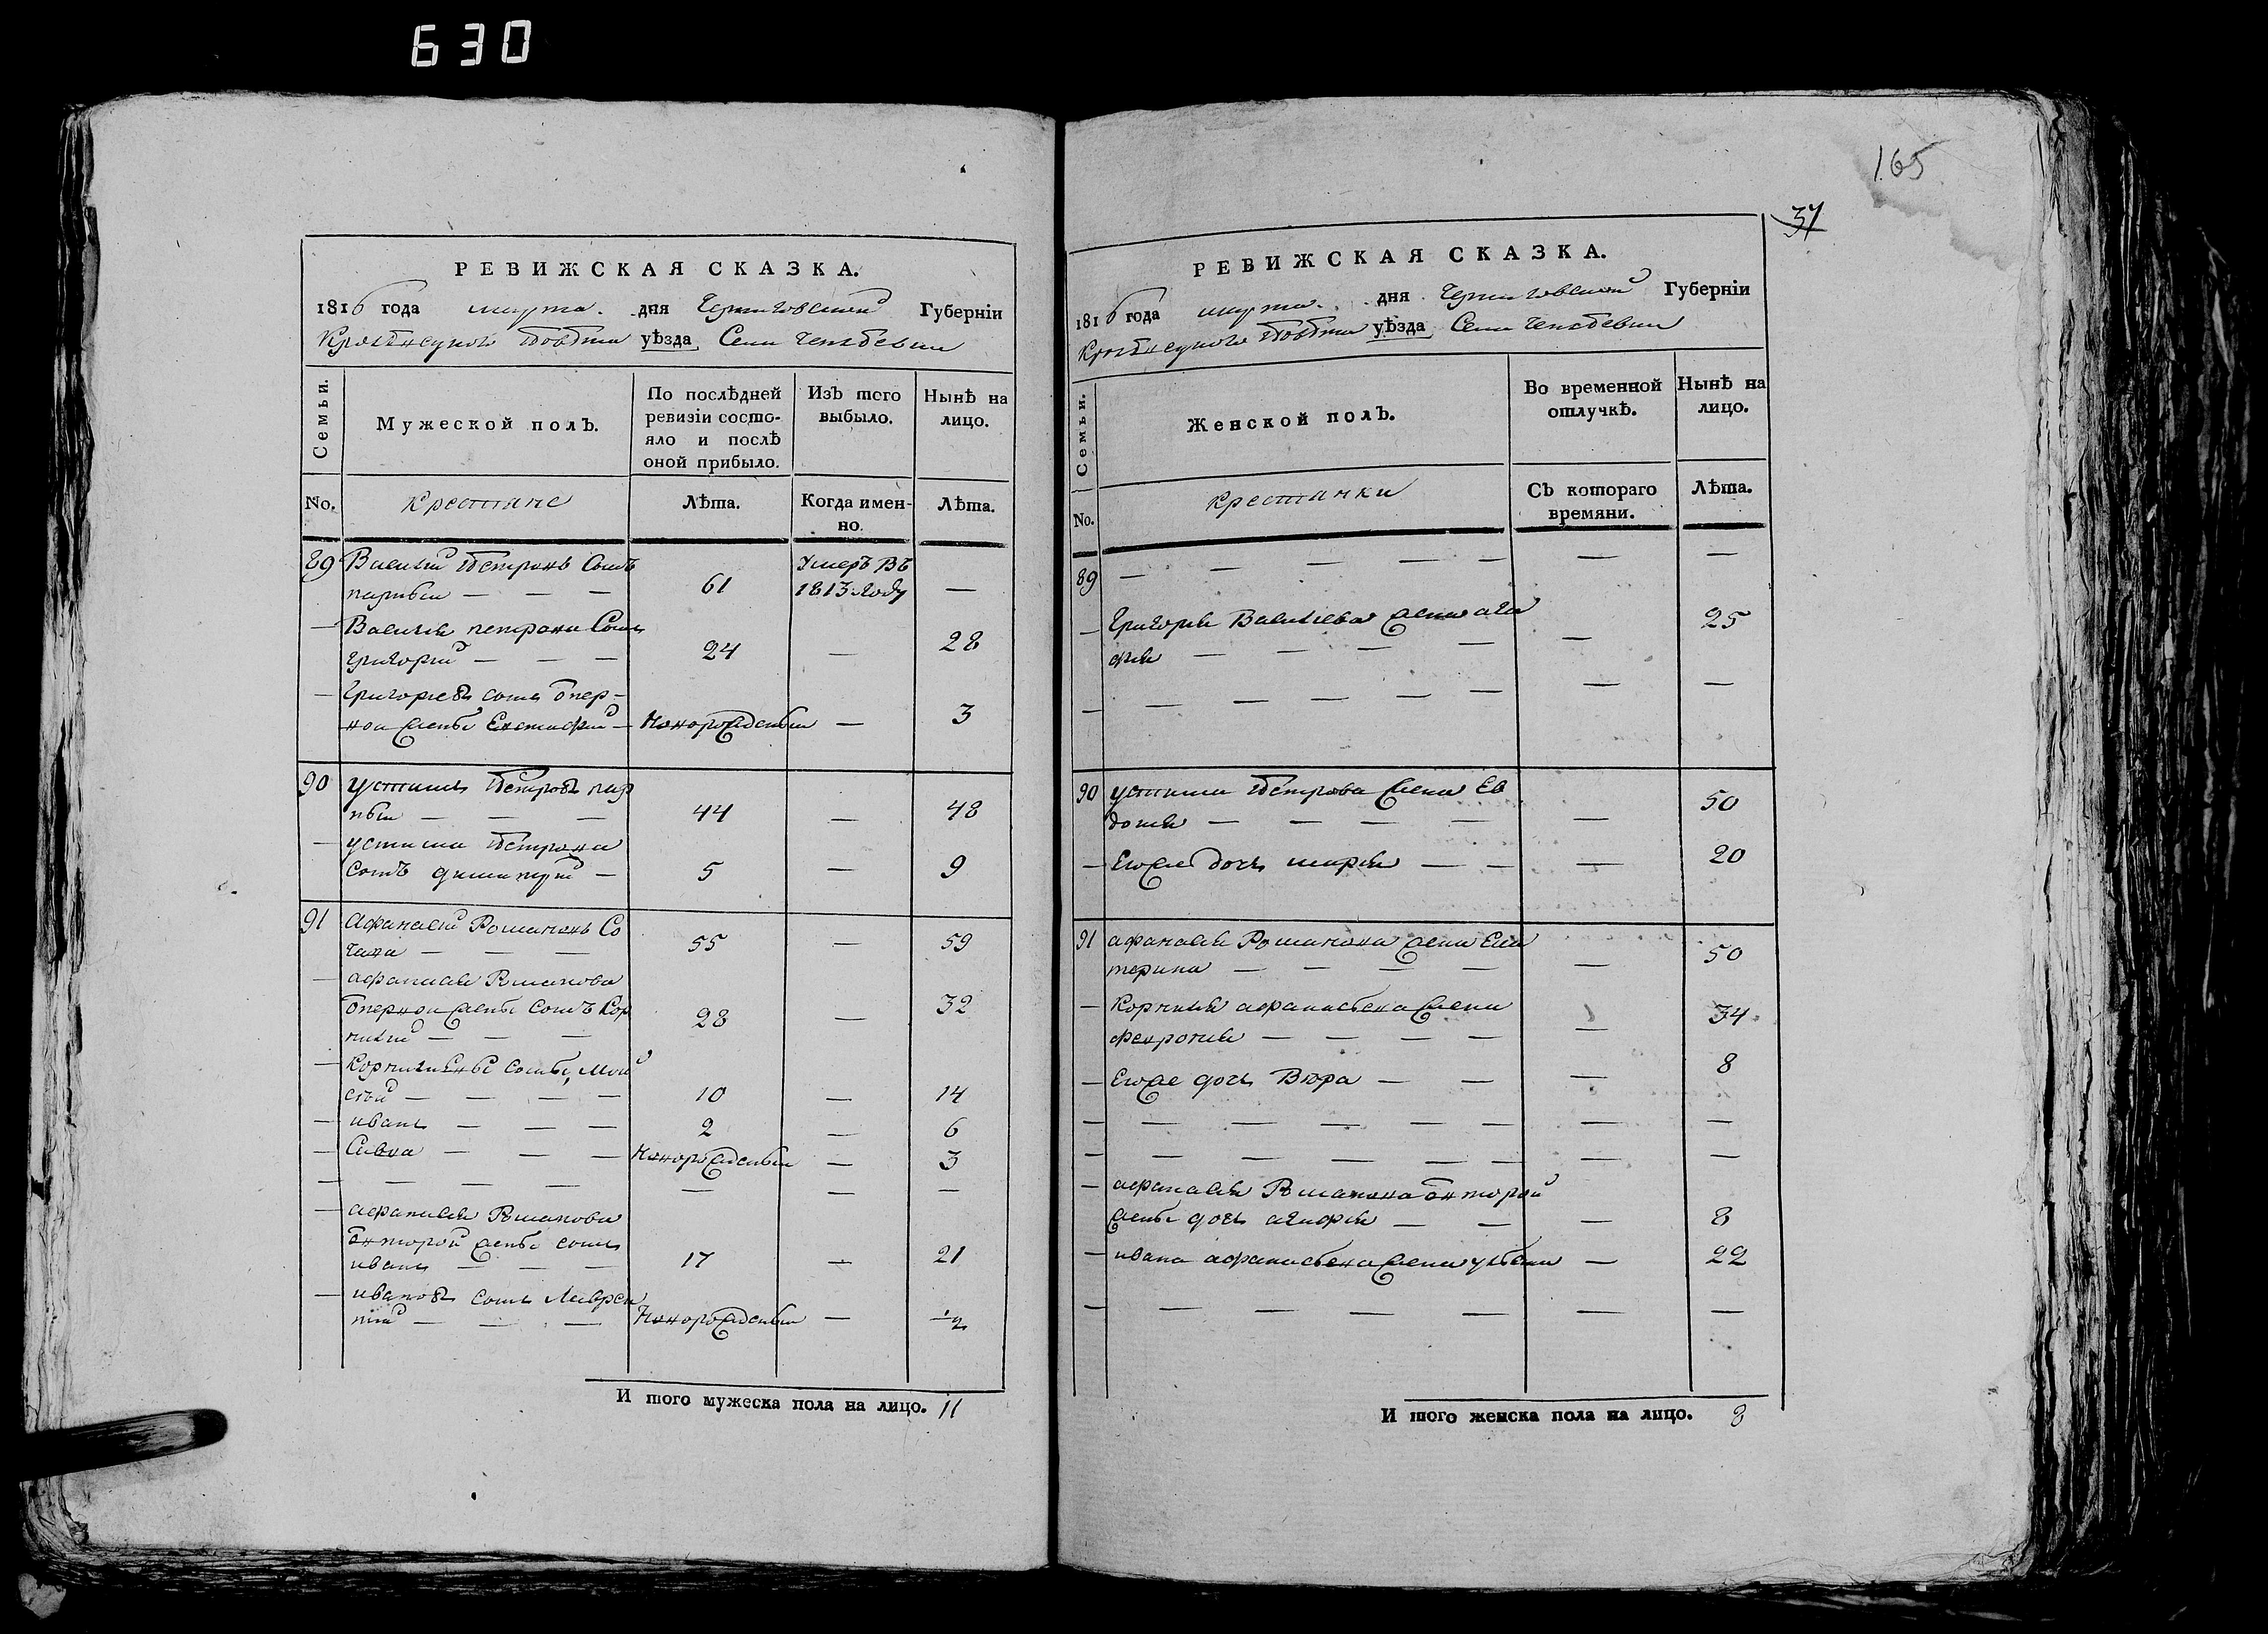 630
165
37
РЕВИЖСКАЯ СКАЗКА.
1816 года марта дня Черниговской Губерніи
повѣта уѣзда Села
Семьи.
Мужеской полъ.
По послѣдней ревизіи состо-
яло и послѣ оной прибыло.
Изъ того выбыло.
Нынѣ на лицо.
No.
Крестяне
Лѣта.
Когда имен-
но.
Лѣта.
89 Василий Петровъ Сынъ
61
Умеръ Въ
1813 году
—
— Василия петрова Сынъ
григорий — — —
24
—
28
— Григориевъ сынъ
Евстафий —
новорожденный
—
3
90 устимъ Петровъ
44
—
48
— устима Петрова
сынъ димитрий —
5
—
9
91 Афанасий Романовъ
55
—
59
— афанасия Романова
первой жены сынъ Кор
нилий — — —
28
—
32
— Корнилиевы сыны Мои
сей — — — —
10
—
14
— иванъ — — —
2
—
6
— Савва — — —
новорожденный
—
3
— — — — — — — —
— афанасия Романова
второй жены сынъ
иванъ — — —
17
—
21
— ивановъ сынъ Лаврен
тий — — —
новорожденный
—
½
И того мужеска пола на лицо. 11
РЕВИЖСКАЯ СКАЗКА.
1816 года марта дня Черниговской Губерніи
повѣта уѣзда Села
Семьи.
Женской полъ.
Во временной
отлучкѣ.
Нынѣ на
лицо.
No.
крестянки
Съ котораго
времяни.
Лѣта.
89 — — — — — — —
— Григория Василиева жена ага
фия — — — —
—
25
— — — — — — —
90 устима Петрова жена Ев
докия — — — —
—
50
— Егоже дочь мария — —
—
20
91 афанасия Романова жена Ека
терина — — — —
—
50
— Корнилия афанасьева жена
феврония — — — —
—
34
— Егоже дочь Вѣра — —
—
8
— — — — — — — —
— — — — — — — —
— афанасия Романова второй
жены дочь агафия — —
—
8
— ивана афанасьева жена улияна
—
22
— — — — — — — —
И того женска пола на лицо. 8